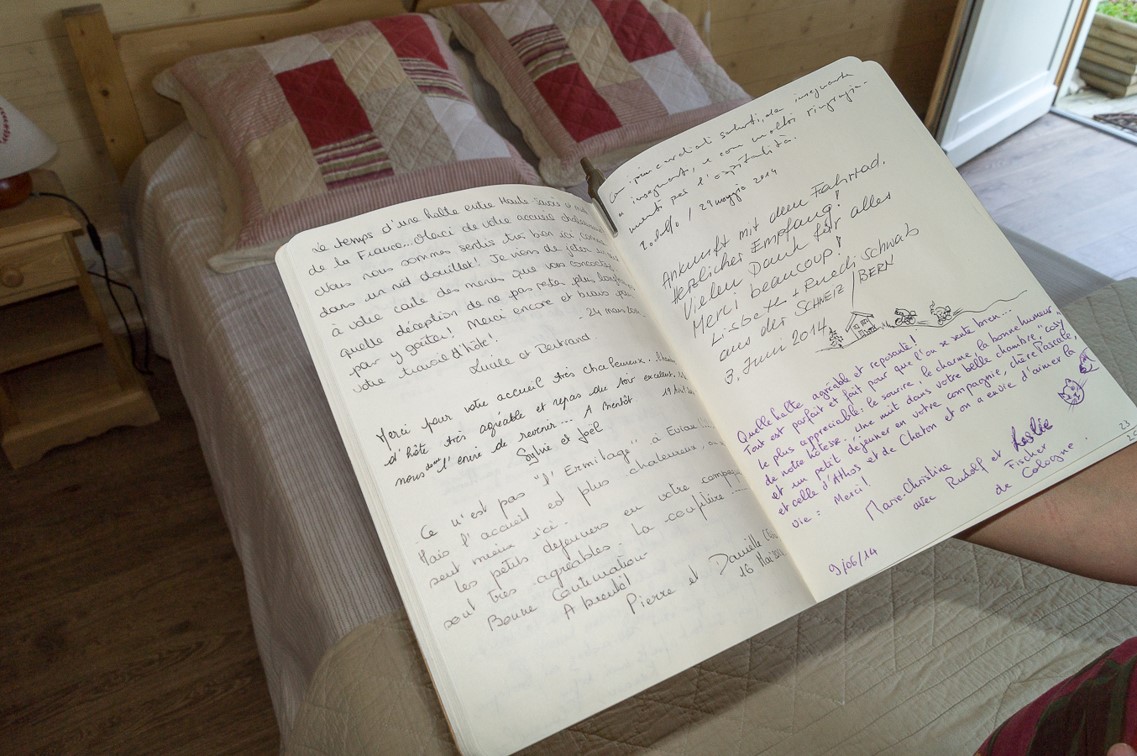 Le temps d'une halte entre Haute Savoie et
de la France... Merci de votre accueil
Nous nous sommes sentis très bien ici comme
dans un nid douillet! Je viens de jeter
à votre carte des menus que vous
quelle déception de ne pas rester plus longtemps
pour y goûter! Merci encore et bravo pour
votre travail d'hôte!
24 mai
Lucile et Bertrand
Merci pour votre accueil très chaleureux.
d'hôte très agréable et repas du soir excellent.
nous l'envie de revenir... A bientôt
Sylvie et Joël
Ce n'est pas "l'Ermitage" à Evian
Mais l'accueil est plus chaleureux,
sent mieux ici.
Les petits déjeuners en votre
sont très agréables. la confiture
Bonne Continuation
A bientôt
Pierre et Danielle
16 Mai
cordiali saluti,
e con molti
per l'ospitalità.
Rodolfo / 29 maggio 2014
Ankunft mit dem Fahrrad.
Herzlicher Empfang!
Vielen Dank für alles
Merci beaucoup!
Lisbeth + Ruedi Schwab
aus der SCHWEIZ / BERN
3. Juni 2014
Quelle halte agréable et reposante!
Tout est parfait et fait pour que l'on se sente bien...
le plus appréciable: le sourire, le charme, la bonne humeur
de notre hôtesse. Une nuit dans votre belle chambre "cosy"
et un petit déjeuner en votre compagnie, chère Pascale,
et celle d'Athos et de Chaton et on a envie d'aimer la
vie: Merci!
Marie-Christine
avec Rudolf et Leslie
Fischer
de Cologne.
9/06/14
23